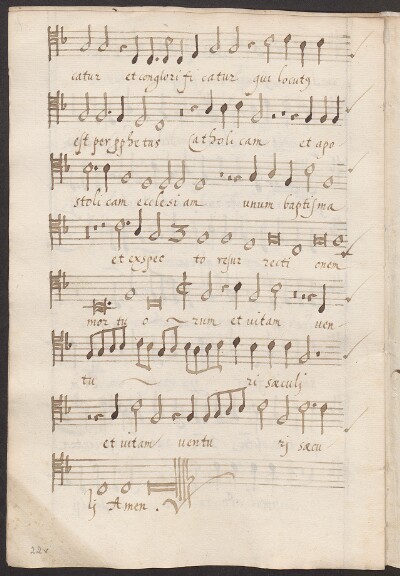 catur et conglori fi catur qui locutꝰ
est per pphe tas Catholi cam et apo-
stoli cam ecclesi am unum baptisma
et expec to resur recti onem
mor tu o rum et uitam uen-
tu ri sæculj
et uitam uentu rj sæcu
lj Amen.
22v